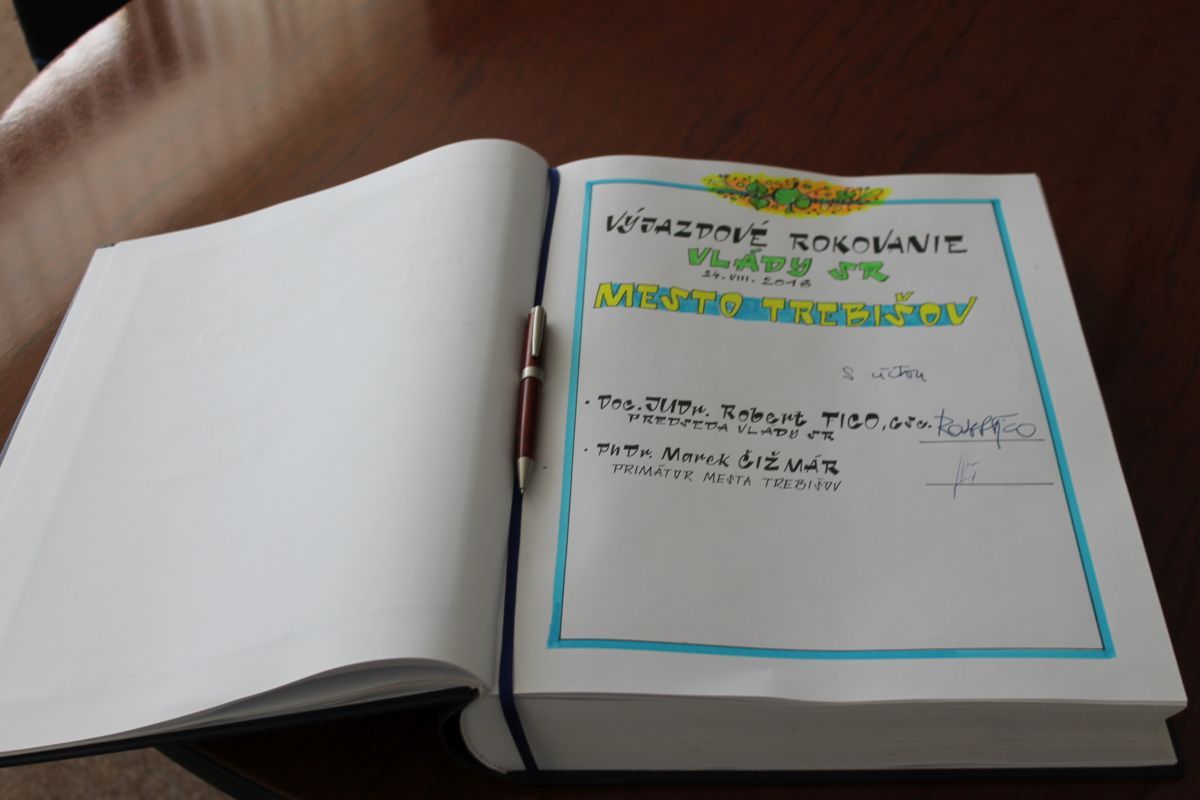 VÝJAZDOVÉ ROKOVANIE
VLÁDY SR
24. VIII. 2016
MESTO TREBIŠOV
S úctou
• Doc. JUDr. Robert FICO, CSc.
PREDSEDA VLÁDY SR
• PhDr. Marek ČIŽMÁR
PRIMÁTOR MESTA TREBIŠOV